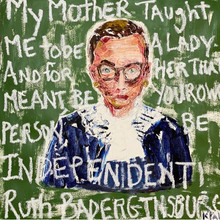 My MOTHER TAUGHT,
ME TO BE A LADY.
AND FOR HER THAT
MEANT BE YOUR OWN
PERSON, BE
INDEPENDENT!
RUTH BADER GINSBURG